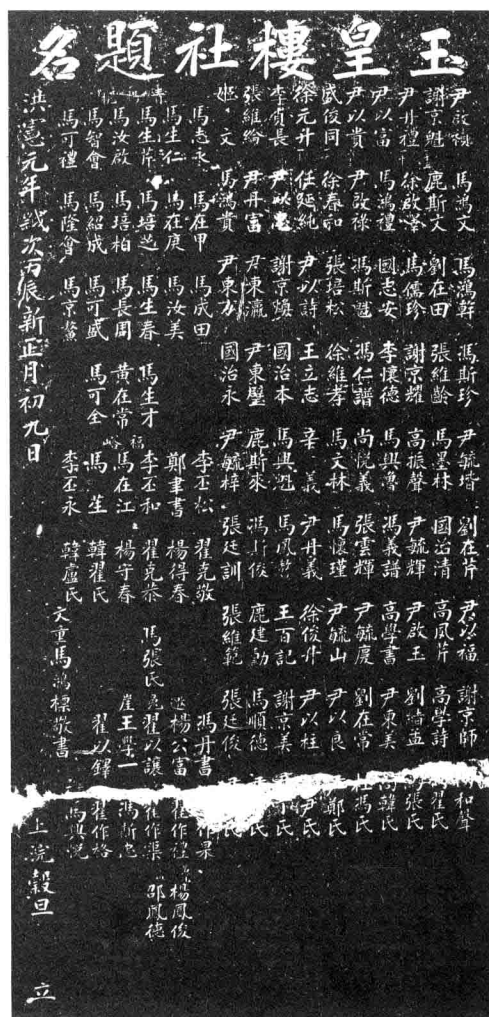 玉皇樓社題名
尹啟 馬鴻文 馬鴻幹 馮斯珍 尹毓堦 劉在芹 尹以福 謝京師 和聲
謝京魁 鹿斯文 劉在田 張維齡 馬墨林 國治清 高凤芹 高學詩 翟氏
尹丹禮 徐啟峯 馬儒珍 謝京耀 高振聲 尹毓輝 尹啟玉 劉靖孟 張氏
尹以富 馬鴻禮 國志安 李懷德 馬興魯 馮義譜 高學書 尹東美 韓氏
尹以貴 尹啟祿 馮斯謨 馮仁譜 尚悅義 張雲輝 尹毓慶 劉在常 馮氏
盛俊同 徐春和 張培松 徐維孝 馬文林 馬懷瑾 尹毓山 尹以良 鄭氏
徐元升 任延純 尹以詩 王立志 辛義 尹丹義 徐俊升 尹以柱 尹氏
李貭長 尹以忠 謝京煥 國治本 馬興魁 馬鳳 王百記 謝京美 氏
張維綸 尹丹富 尹東瀛 尹東壁 鹿斯來 馮斯俊 鹿建勳 馬順德 氏
姬文 馬鴻貴 尹東方 國治永 尹毓梓 張廷訓 張維範 張廷俊 氏
馬志永 馬在甲 馬成田 李丕松 翟克敬 馮丹書 作杲
馬生仁 馬在庚 馬汝美 鄭聿書 楊得春 楊公富 翟作程 楊鳳俊
馬生芹 馬培芝 馬生春 馬生才 李丕和 翟克恭 馬張氏 翟以讓 作渠 邵鳳德
馬汝啟 馬培柏 馬長周 黃在常 馬在江 楊守春 崖王學一 馮斯忠
馬智會 馬紹成 馬可盛 馬可全 馬苼 韓翟氏 翟以鐸 翟作格
馬可禮 馬隆會 馬京鰲 李丕永 韓盧氏 馬興悅
文童馬鴻標敬書
洪憲元年歲次丙辰新正月初九日 上浣穀旦 立